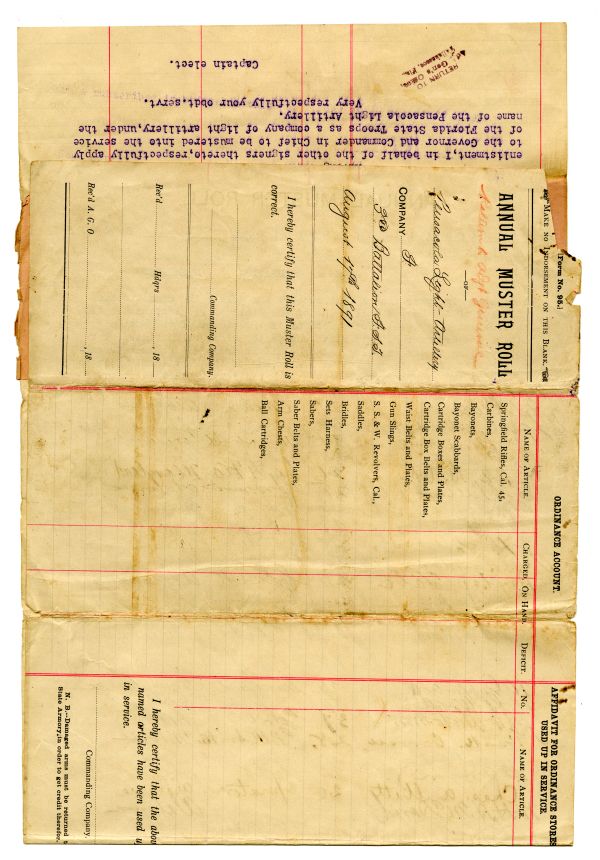 enlistment, I in behalf of the other signers thereto, respectfully apply
to the Governor and Commander in Chief to be mustered into the service
of the Florida State Troops as a company of light artillery, under the
name of the Pensacola Light Artillery.
Very respectfully your obdt, servt.
Captain elect.
RETURN TO
Gen's Office,
Tallahassee, Fla.
[Form No. 95.]
MAKE NO INDORSEMENT ON THIS BLANK.
ANNUAL MUSTER ROLL
—OF—
Pensacola Light Artillery
COMPANY A
3rd Battalion F.S.T.
August 17th 1891
I hereby certify that this Muster Roll is
correct.
Commanding Company.
Rec'd Hdqrs , 18
Rec'd A. G. O , 18
ORDINANCE ACCOUNT.
NAME OF ARTICLE. CHARGED. ON HAND. DEFICIT.
Springfield Rifles, Cal. 45,
Carbines,
Bayonets,
Bayonet Scabbards,
Cartridge Boxes and Plates,
Cartridge Box Belts and Plates,
Waist Belts and Plates,
Gun Slings,
S. S. & W. Revolvers, Cal.,
Saddles,
Bridles,
Sets Harness,
Sabers,
Saber Belts and Plates,
Arm Chests,
Ball Cartridges,
AFFIDAVIT FOR ORDINANCE STORES
USED UP IN SERVICE.
No. NAME OF ARTICLE.
I hereby certify that the above
named articles have been used u
in service.
Commanding Company.
N. B.—Damaged arms must be returned t
State Armory, in order to get credit therefor.